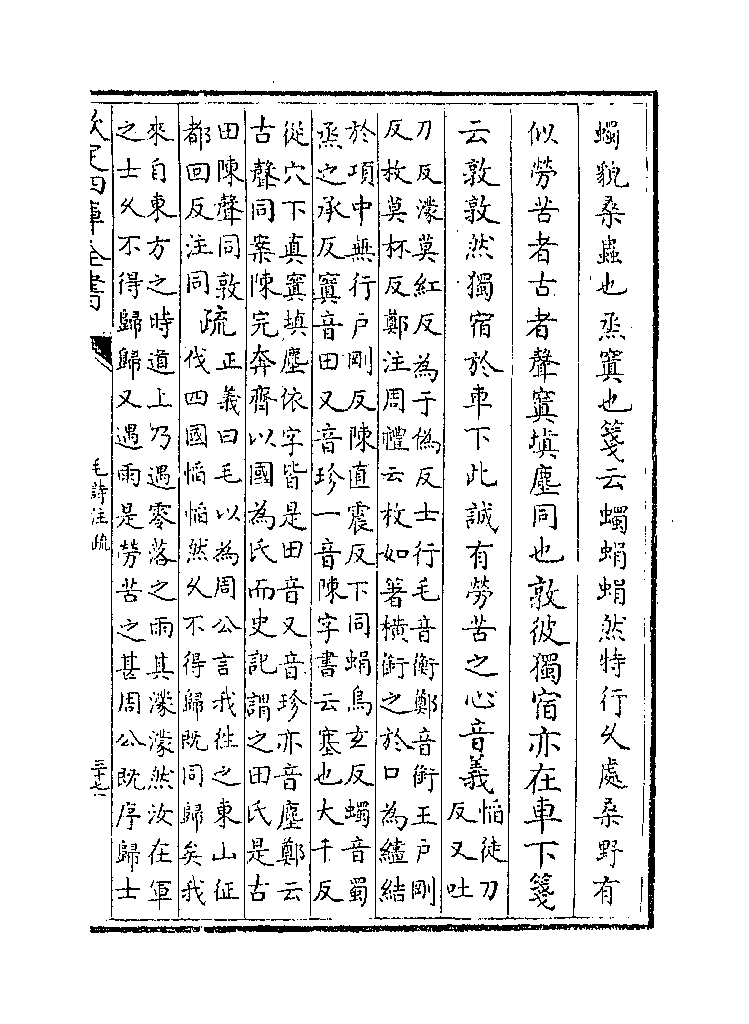 蠋貌桑蟲也烝窴也箋云蠋蜎蜎然特行久處桑野有
似勞苦者古者聲窴填塵同也敦彼獨宿亦在車下箋
云敦敦然獨宿於車下此誠有勞苦之心音義
慆徒刀
反又吐
刀反濛莫紅反為于偽反士行毛音衡鄭音銜王戶剛
反枚莫杯反鄭注周禮云枚如箸橫銜之於口為繣結
於項中無行戶剛反陳直震反下同蜎烏玄反蠋音蜀
烝之承反窴音田又音珍一音陳字書云塞也大千反
從穴下真窴填塵依字皆是田音又音珍亦音塵鄭云
古聲同案陳完奔齊以國為氏而史記謂之田氏是古
田陳聲同敦
都回反注同
疏
正義曰毛以為周公言我徃之東山征
伐四國慆慆然久不得歸既同歸矣我
來自東方之時道上乃遇零落之雨其濛濛然汝在軍
之士久不得歸歸又遇雨是勞苦之甚周公既序歸士
欽定四庫全書
毛詩注疏
三十七